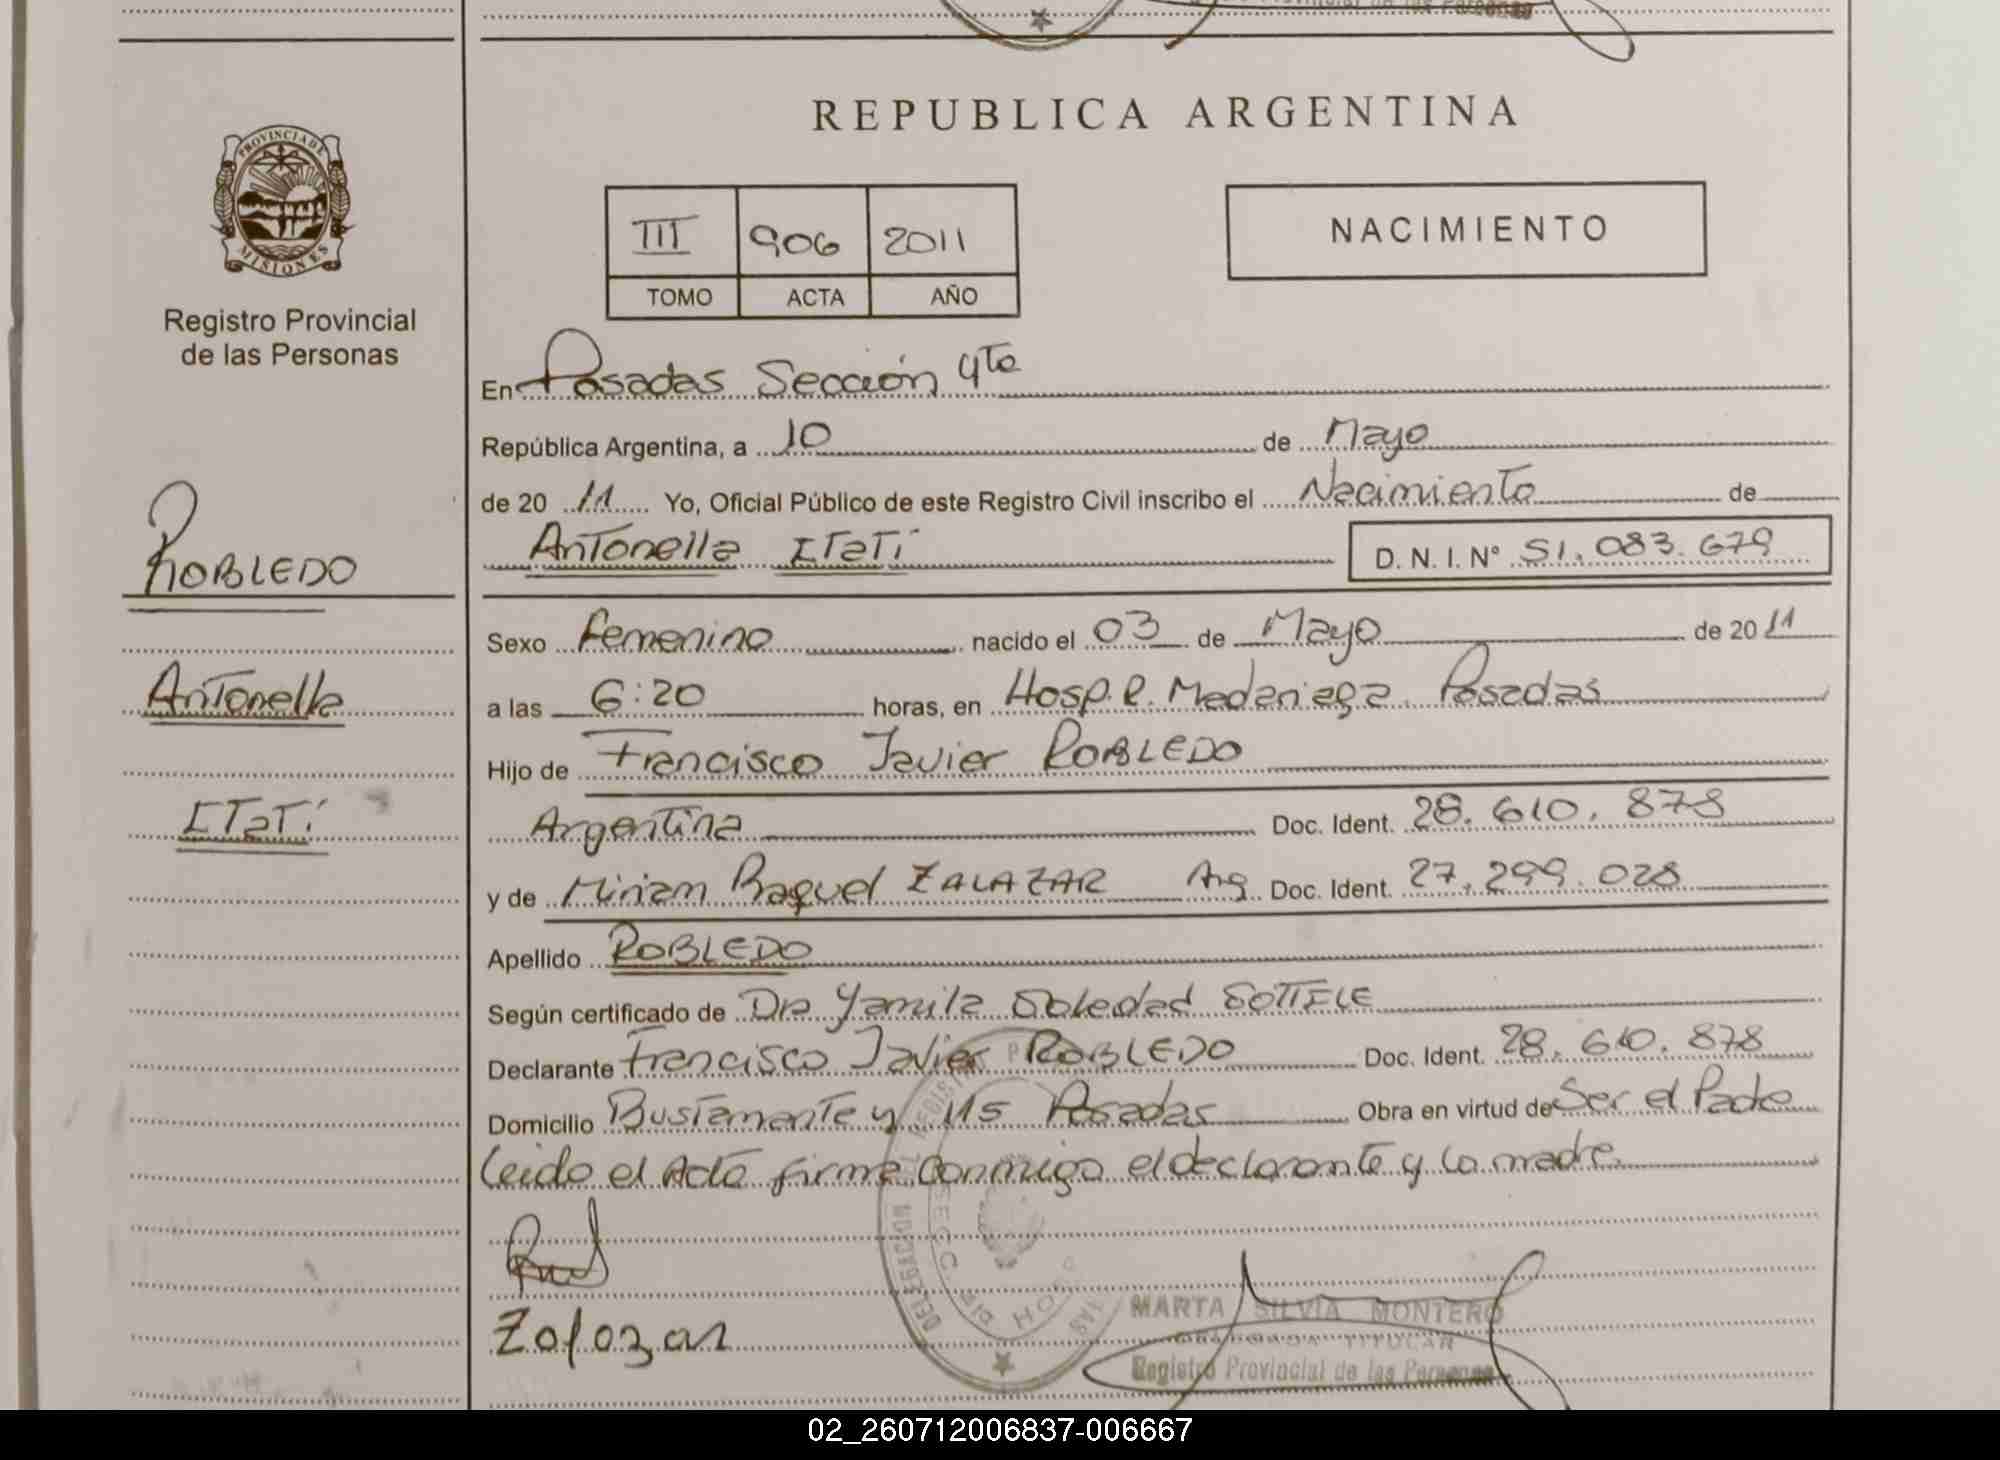 REPUBLICA ARGENTINA
PROVINCIA DE
MISIONES
Registro Provincial
de las Personas
III 906 2011
TOMO ACTA AÑO
NACIMIENTO
En Posadas Sección 4ta
República Argentina, a 10 de Mayo
de 20 11 Yo, Oficial Público de este Registro Civil inscribo el Nacimiento de
Antonella Itatí D. N. I. N° 51.083.679
ROBLEDO
Antonella
Itatí
Sexo Femenino nacido el 03 de Mayo de 20 11
a las 6:20 horas, en Hosp. R. Madariaga Posadas
Hijo de Francisco Javier ROBLEDO
Argentina Doc. Ident. 28.610.878
y de Miriam Raquel ZALAZAR Arg Doc. Ident. 27.299.028
Apellido ROBLEDO
Según certificado de Dra Yamila Soledad SOTTILE
Declarante Francisco Javier ROBLEDO Doc. Ident. 28.610.878
Domicilio Bustamante y 115 Posadas Obra en virtud de Ser el Padre
Leido el Acta firma conmigo el declarante y la madre.
Zalazar
MARTA SILVIA MONTERO
DELEGADA TITULAR
Registro Provincial de las Personas
02_260712006837-006667